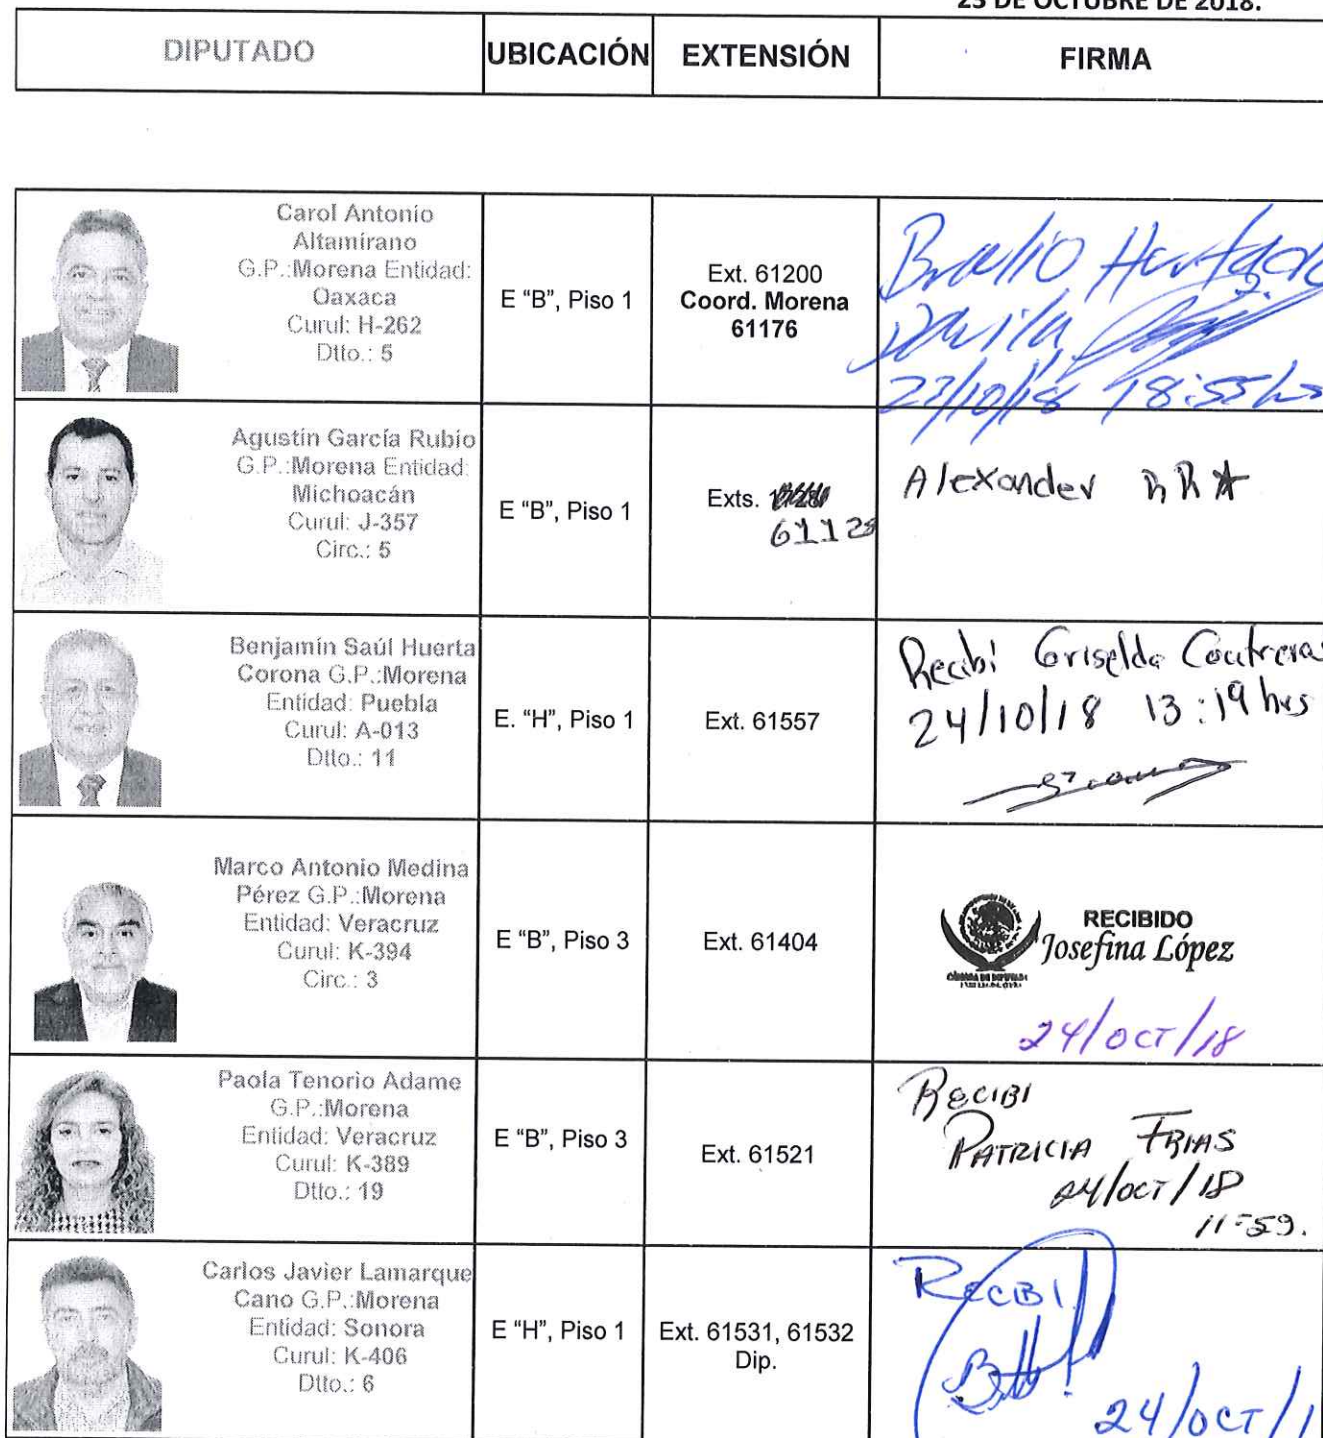 23 DE OCTUBRE DE 2018.
DIPUTADO UBICACIÓN EXTENSIÓN FIRMA
Carol Antonio
Altamirano
G.P.:Morena Entidad:
Oaxaca
Curul: H-262
Dtto.: 5
E "B", Piso 1
Ext. 61200
Coord. Morena
61176
Braulio Hurtado
Davila
23/10/18 18:55 hs
Agustín García Rubio
G.P.:Morena Entidad:
Michoacán
Curul: J-357
Circ.: 5
E "B", Piso 1
Exts.
61128
Alexander RR
Benjamín Saúl Huerta
Corona G.P.:Morena
Entidad: Puebla
Curul: A-013
Dtto.: 11
E. "H", Piso 1
Ext. 61557
Recibi Griselda Contreras
24/10/18 13:19 hrs
Marco Antonio Medina
Pérez G.P.:Morena
Entidad: Veracruz
Curul: K-394
Circ.: 3
E "B", Piso 3
Ext. 61404
RECIBIDO
Josefina López
CÁMARA DE DIPUTADOS
24/OCT/18
Paola Tenorio Adame
G.P.:Morena
Entidad: Veracruz
Curul: K-389
Dtto.: 19
E "B", Piso 3
Ext. 61521
RECIBI
PATRICIA FRIAS
24/OCT/18
11:59.
Carlos Javier Lamarque
Cano G.P.:Morena
Entidad: Sonora
Curul: K-406
Dtto.: 6
E "H", Piso 1
Ext. 61531, 61532
Dip.
RECIBI
24/OCT/1